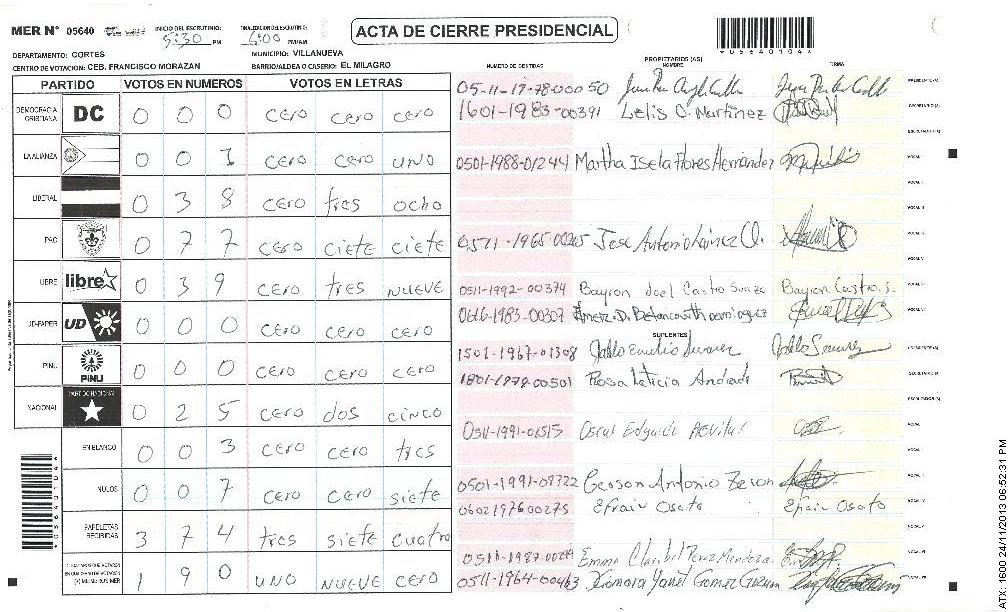 MER Nº 05640
INICIO DEL ESCRUTINIO: 5:30 PM
FINALIZACION DEL ESCRUTINIO: 6:00 PM/AM
ACTA DE CIERRE PRESIDENCIAL
05640104
DEPARTAMENTO: CORTES
MUNICIPIO: VILLANUEVA
CENTRO DE VOTACION: CEB. FRANCISCO MORAZAN
BARRIO/ALDEA O CASERIO: EL MILAGRO
PARTIDO VOTOS EN NUMEROS VOTOS EN LETRAS
DEMOCRACIA CRISTIANA DC 0 0 0 cero cero cero
LA ALIANZA 0 0 1 cero cero uno
LIBERAL 0 3 8 cero tres ocho
PAC 0 7 7 cero ciete ciete
LIBRE libre 0 3 9 cero tres nueve
UD-FAPER UD 0 0 0 cero cero cero
PINU PINU 0 0 0 cero cero cero
NACIONAL PARTIDO NACIONAL 0 2 5 cero dos cinco
EN BLANCO 0 0 3 cero cero tres
NULOS 0 0 7 cero cero siete
PAPELETAS RECIBIDAS 3 7 4 tres siete cuatro
1 9 0 uno nueve cero
NUMERO DE IDENTIDAD
PROPIETARIOS (AS)
NOMBRE
FIRMA
PRESIDENTE(A)
1601-1983-00391 Lelis O. Martinez
SECRETARIO (A)
ESCRUTADOR (A)
0501-1988-01244 Martha Isela Flores Hernandez
VOCAL I
VOCAL II
VOCAL III
Jose Antonio Lainez O.
VOCAL IV
0511-1992-00374 Bayron Joel Castro Suazo Bayron Castro. S.
VOCAL V
1983-00307
SUPLENTES
1501-1967-01308 Pablo Emilio Suarez
1801-1979-00501 Rosa Leticia Andrade
SECRETARIO (A)
ESCRUTADOR (A)
0511-1991-01515 Oscar Edgardo
VOCAL I
0501-1991-09722 Gerson Antonio Zeron
0602197600275 Efrain Osoto Efrain Osoto
Emma Claribel Perez Mendoza
0511-1964-00463 Xiomara Yanet Gomez
ATX-1600 24/11/2013 06:52:31 PM